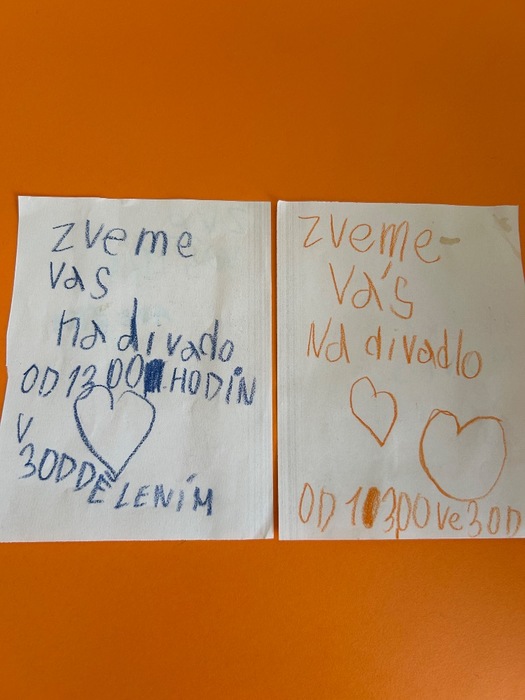 zveme
vas
na divado
OD 1300 HODIN
V
3ODDĚLENÍM
zveme
Vás
Na divadlo
OD 1300 ve 3 OD